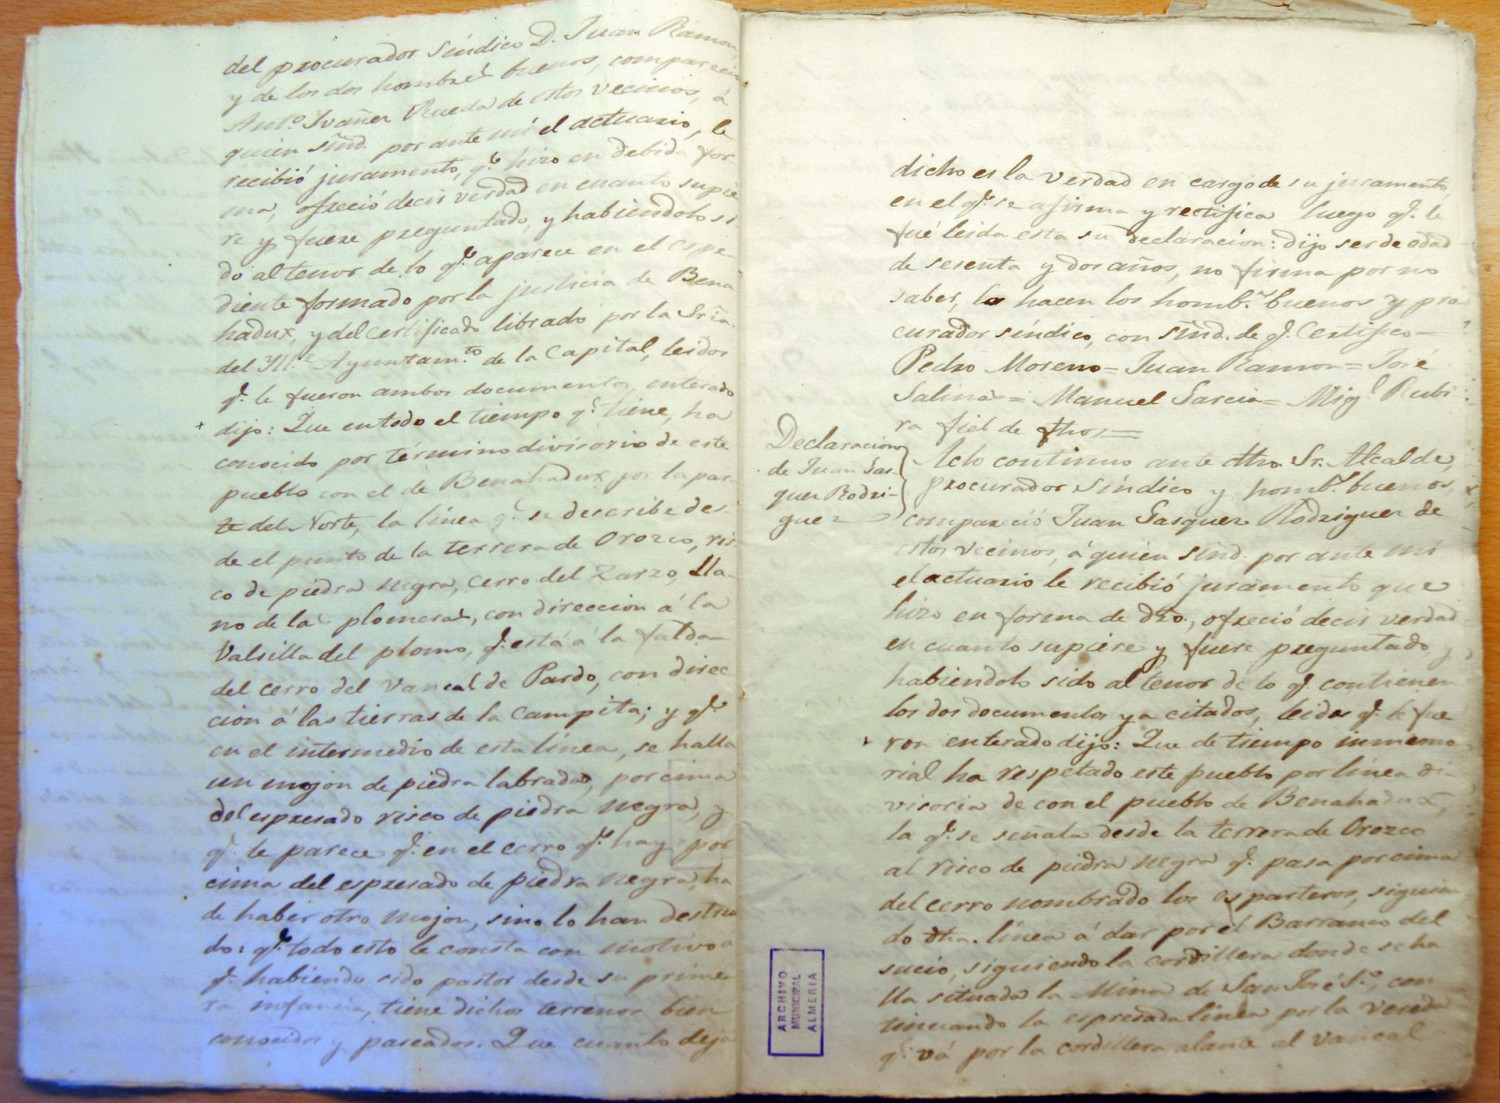 del procurador síndico D. Juan Ramon,
y de los dos hombres buenos, compareció
Ant.º Ivañez Rueda de estos vecinos, á
quien Smd. por ante mí el actuario, le
recibió juramento, q.e hizo en debida for
ma, ofreció decir verdad en cuanto supie
re y fuere preguntado, y habiéndolo si
do al tenor de lo q.e aparece en el espe
diente formado por la justicia de Bena
hadux, y del certificado librado por la Sria.
del Yll.e Ayuntam.to de la Capital, leidos
q.e le fueron ambos documentos, enterado
dijo: Que en todo el tiempo q.e tiene, ha
conocido por término divisorio de este
pueblo con el de Benahadux por la par
te del Norte, la línea q.e se describe des
de el punto de la terrera de Orozco, ris
co de piedra negra, cerro del Zarzo, Lla-
no de las plomeras, con direccion á la
Valsilla del plomo, q.e está á la falda
del cerro del Vancal de Pardo, con direc
cion á las tierras de la Campita; y q.e
en el intermedio de esta línea, se halla
un mojon de piedra labrada, por cima
del espresado risco de piedra negra, y
q.e le parece q.e en el cerro q.e hay por
cima del espresado de piedra negra, ha
de haber otro mojon, sino lo han destrui
do: q.e todo esto le consta con motivo a
q.e habiendo sido pastor desde su prime
ra infancia, tiene dichos terrenos bien
conocidos y paseados. Que cuanto deja
dicho es la verdad en cargo de su juramento,
en el q.e se afirma y rectifica luego q.e le
fué leida esta su declaración: dijo ser de edad
de sesenta y dos años, no firma por no
saber, lo hacen los homb.s buenos y pro
curador síndico, con Smd. de q.e Certifico=
Pedro Moreno= Juan Ramon= José
Salinas= Manuel Garcia= Mig.l Rubi
ra fiel de fhos=
Declaracion
de Juan Gas
quez Rodri-
guez
Acto continuo ante dho. Sr. Alcalde,
procurador Síndico y homb.s buenos,
compareció Juan Gasquez Rodriguez de
estos vecinos, á quien Smd. por ante mi
el actuario le recibió juramento que
hizo en forma de dro., ofreció decir verdad
en cuanto supiere y fuere preguntado y
habiendolo sido al tenor de lo q.e contienen
los dos documentos ya citados, leidos q.e le fue
ron enterado dijo: Que de tiempo inmemo
rial ha respetado este pueblo por línea di
visoria de con el pueblo de Benahadux,
la q.e se señala desde la terrera de Orozco
al risco de piedra negra q.e pasa por cima
del cerro nombrado los esparteros, siguien
do dha. línea á dar por el Barranco del
sucio, siguiendo la cordillera donde se ha
lla situada la Mina de San José S.º, con
tinuando la espresada línea por la vereda
q.e vá por la cordillera alante al vancal
ARCHIVO
MUNICIPAL
ALMERIA